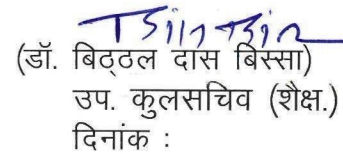 (डॉ. बिठ्ठल दास बिस्सा)
उप. कुलसचिव (शैक्ष.)
दिनांक :